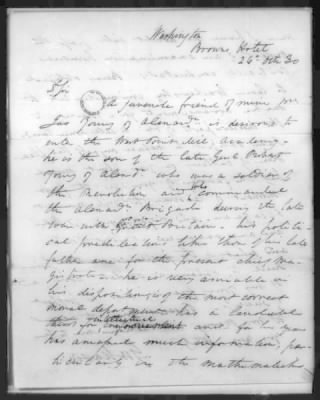 Washington
Browns Hotel
26th Feb 30
Sir
A juvenile friend of mine Mr
Jas Young of Alexand is desirous to
enter the West Point Mil. Academy.
he is the son of the late Genl Robert
Young of Alexd who was a soldier of
the Revolution and who commanded
the Alexandr Brigade during the late
war with Great Britain. his politi-
cal predilections like those of his late
father are for the present chief Ma-
gistrate. he is very amiable in
his disposition, is of the most correct
moral deportment has a laudable
thirst for intellectual improvement and for his years
has amassed much information, par-
ticularly in the Mathematicks